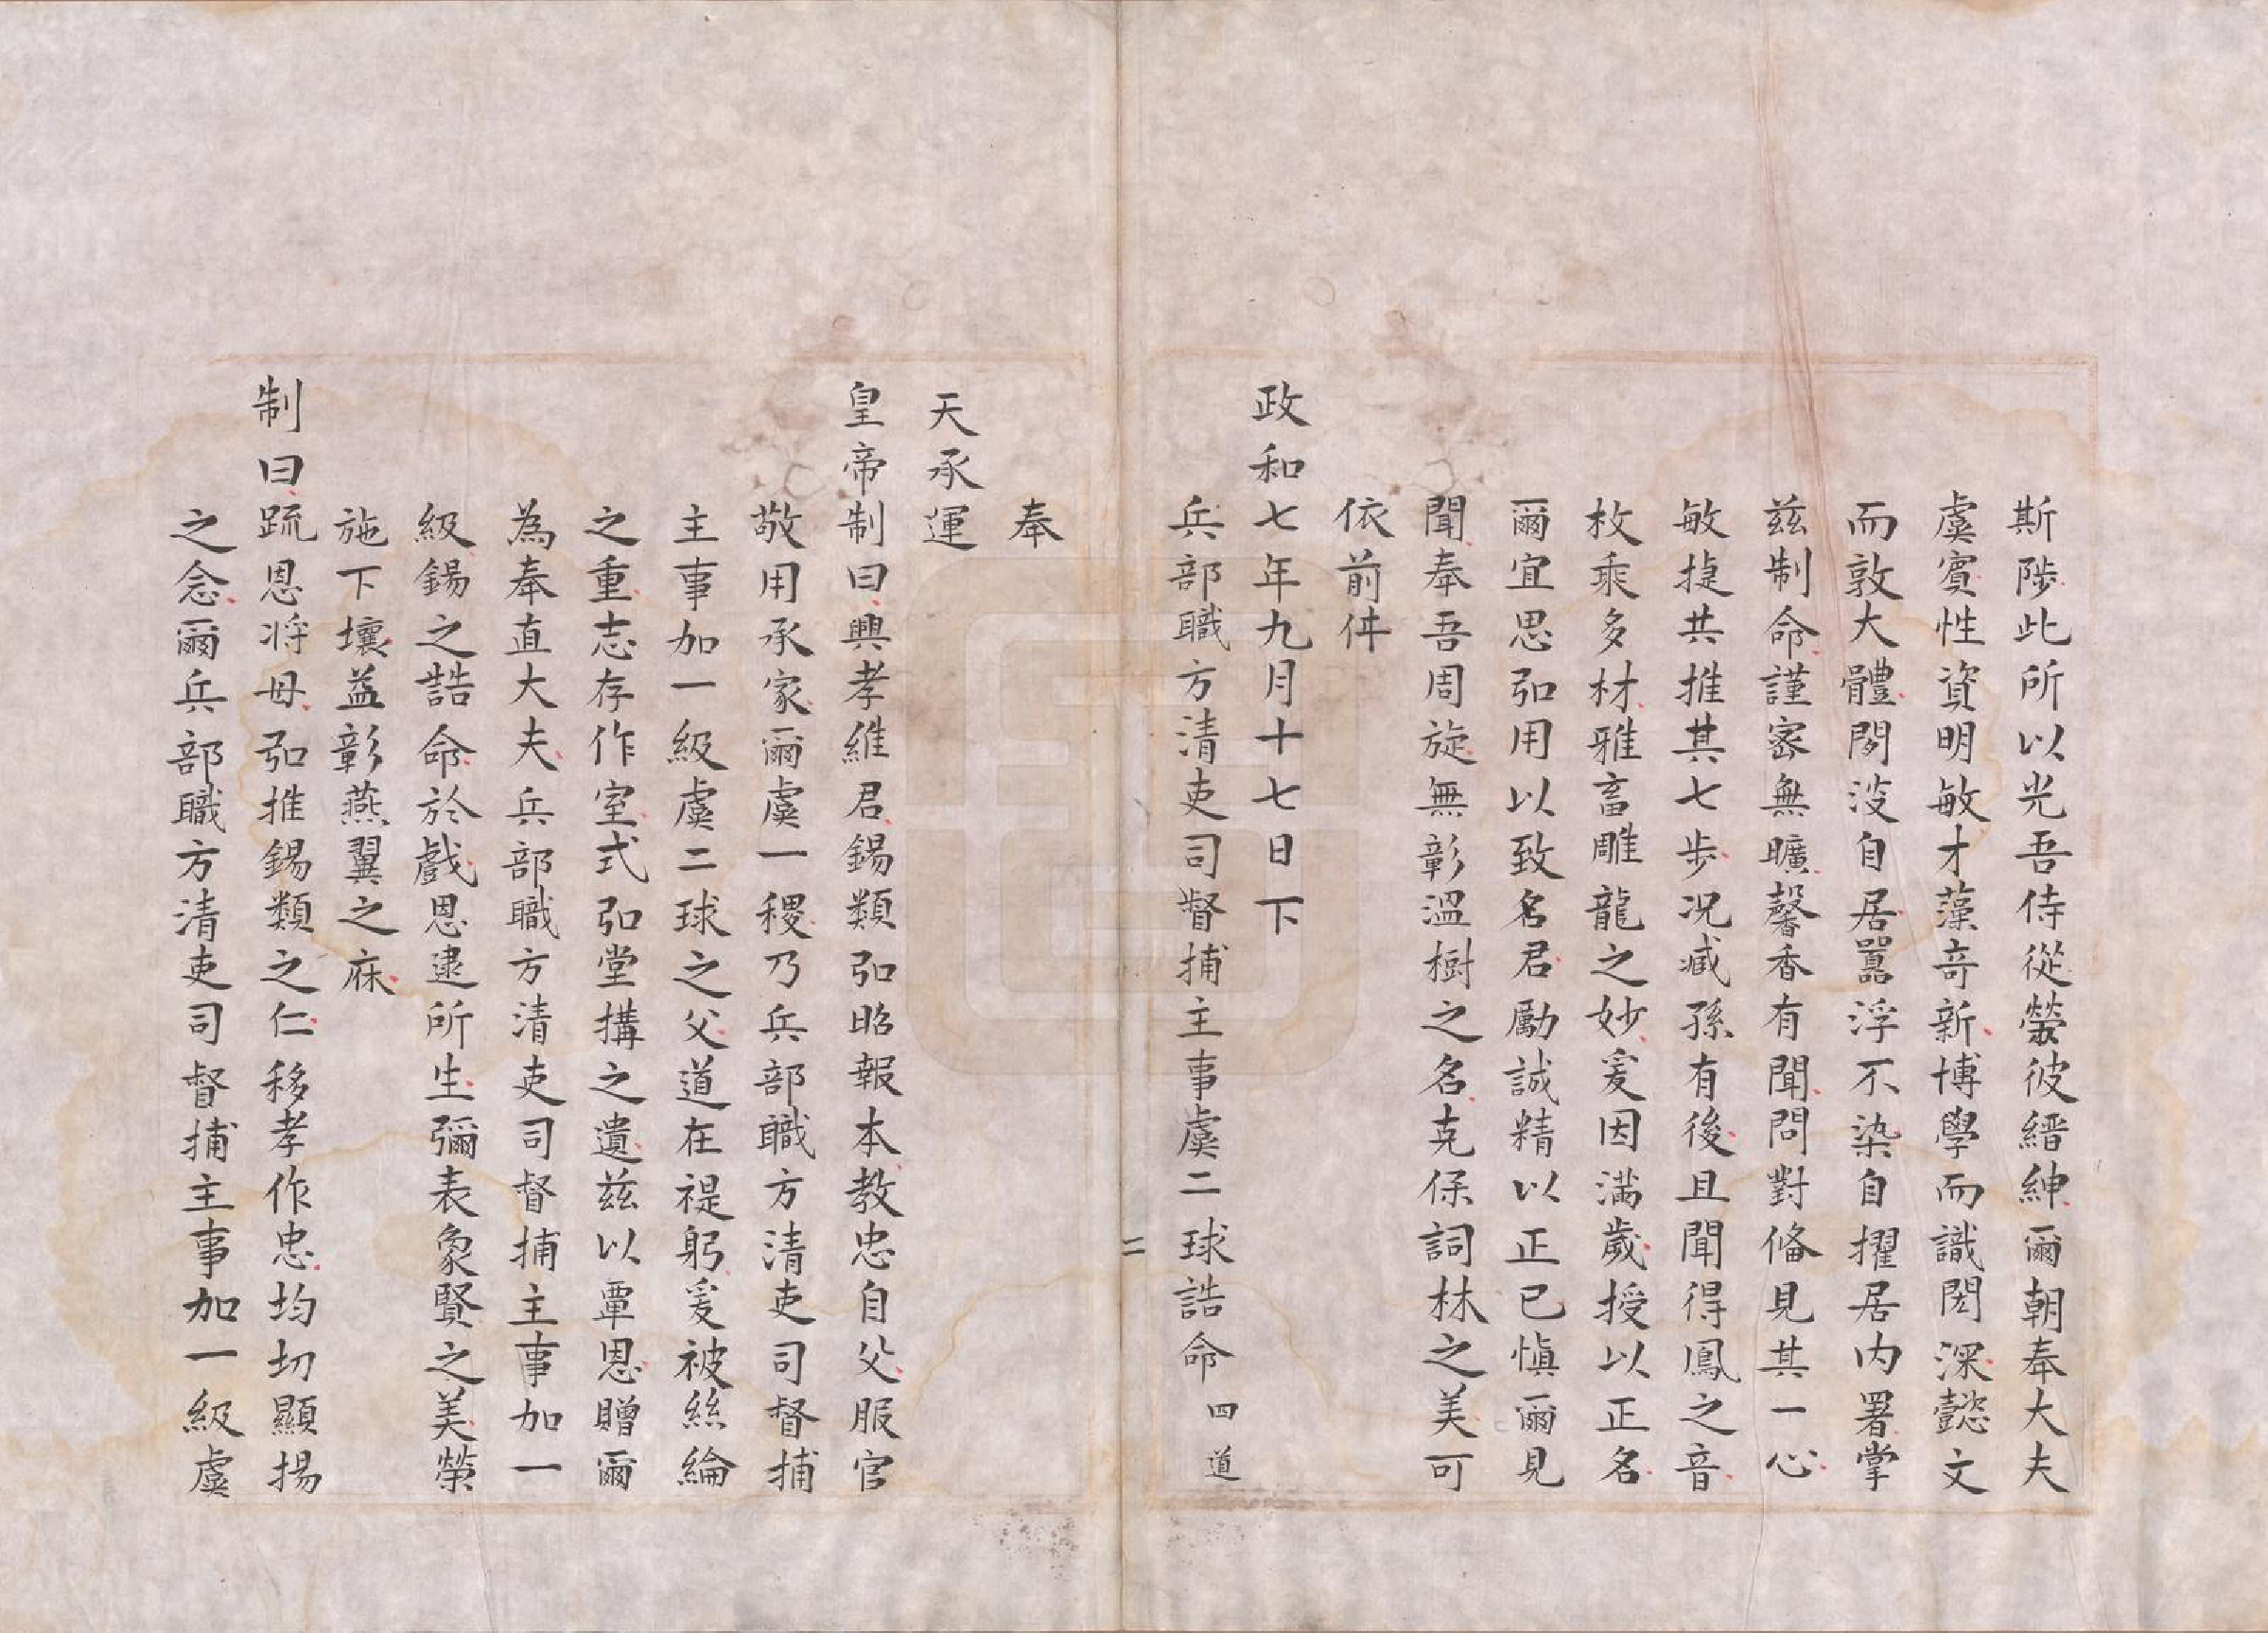 斯陟此所以光吾侍從榮彼縉紳爾朝奉大夫
虞賓性資明敏才藻奇新博學而識閎深懿文
而敦大體閱沒自居囂浮不染自擢居內署掌
茲制命謹密無曠馨香有聞問對脩見其一心
敏捷共推其七步况臧孫有後且聞得鳳之音
枚乘多材雅畜雕龍之妙爰因滿歲授以正名
爾宜思弘用以致名君勵誠精以正己愼爾見
聞奉吾周旋無彰溫樹之名克保詞林之美可
依前件
政和七年九月十七日下
兵部職方清吏司督捕主事虞二球誥命四道
二
奉
天承運
皇帝制曰興孝維君錫類弘昭報本教忠自父服官
敬用承家爾虞一稷乃兵部職方清吏司督捕
主事加一級虞二球之父道在禔躬爰被絲綸
之重志存作室式弘堂搆之遺茲以覃恩贈爾
為奉直大夫兵部職方清吏司督捕主事加一
級錫之誥命於戲恩逮所生彌表象賢之美榮
施下壤益彰燕翼之庥
制曰䟽恩將母弘推錫類之仁移孝作忠均切顯揚
之念爾兵部職方清吏司督捕主事加一級虞